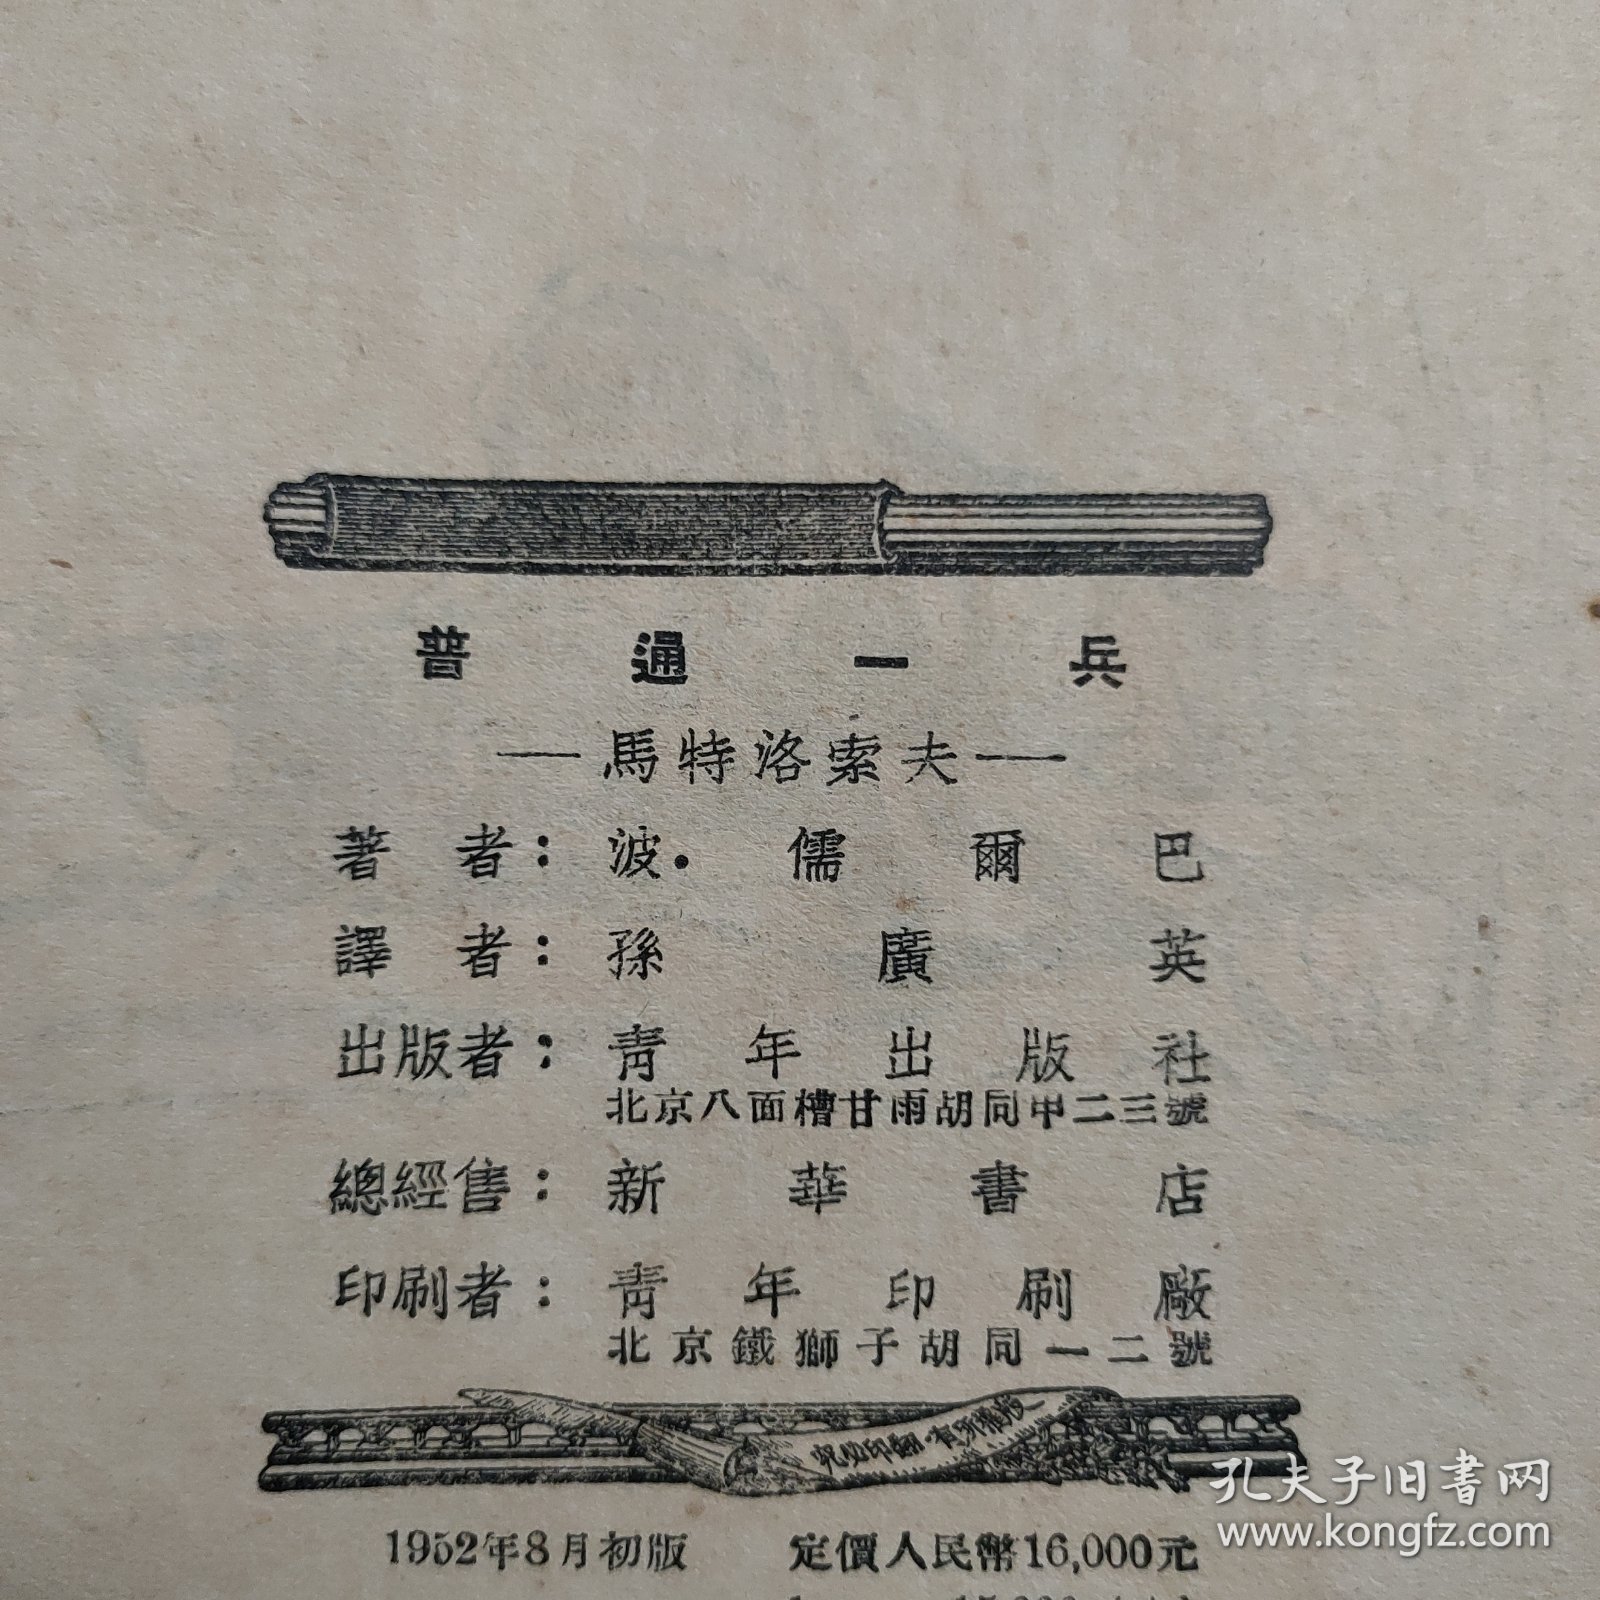 普通一兵
——馬特洛索夫——
著者：波·儒爾巴
譯者：孫廣英
出版者：青年出版社
北京八面槽甘雨胡同甲二三號
總經售：新華書店
印刷者：青年印刷廠
北京鐵獅子胡同一二號
有所權版·翻印必究
1952年8月初版 定價人民幣16,000元
孔夫子旧書网
www.kongfz.com